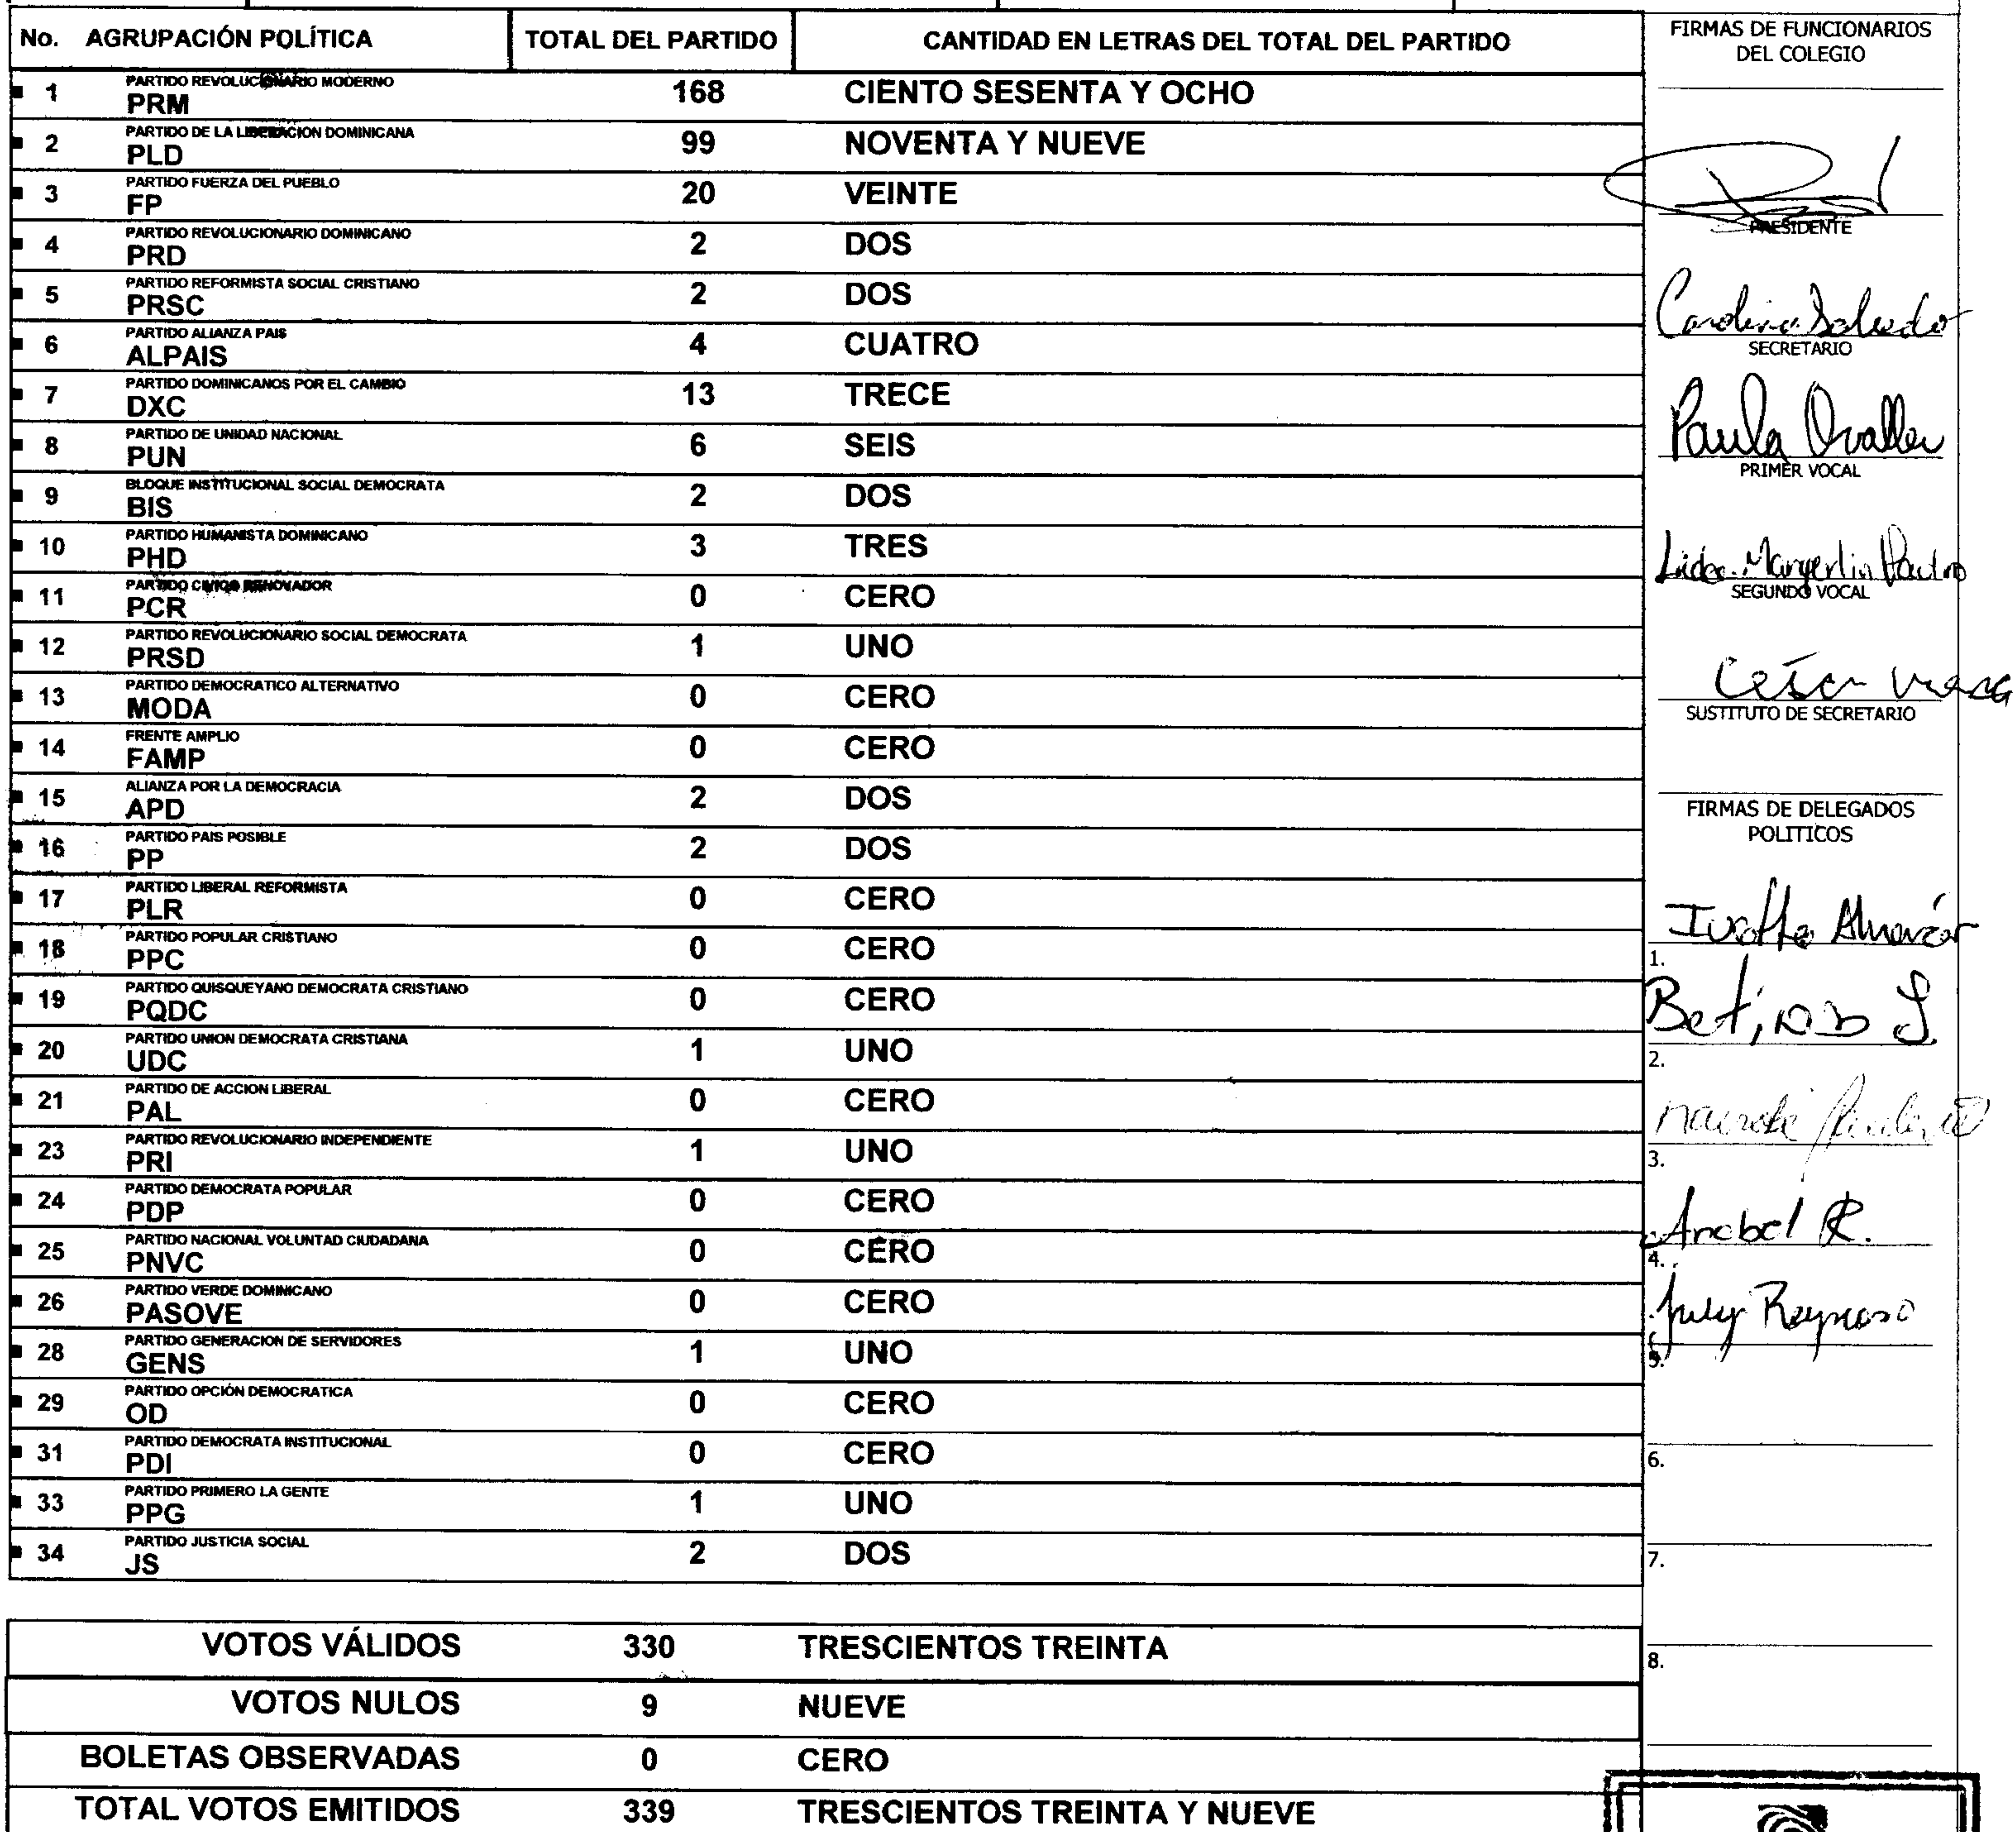 No. AGRUPACIÓN POLÍTICA TOTAL DEL PARTIDO CANTIDAD EN LETRAS DEL TOTAL DEL PARTIDO
PARTIDO REVOLUCIONARIO MODERNO
1 PRM 168 CIENTO SESENTA Y OCHO
PARTIDO DE LA LIBERACION DOMINICANA
2 PLD 99 NOVENTA Y NUEVE
PARTIDO FUERZA DEL PUEBLO
3 FP 20 VEINTE
PARTIDO REVOLUCIONARIO DOMINICANO
4 PRD 2 DOS
PARTIDO REFORMISTA SOCIAL CRISTIANO
5 PRSC 2 DOS
PARTIDO ALIANZA PAIS
6 ALPAIS 4 CUATRO
PARTIDO DOMINICANOS POR EL CAMBIO
7 DXC 13 TRECE
PARTIDO DE UNIDAD NACIONAL
8 PUN 6 SEIS
BLOQUE INSTITUCIONAL SOCIAL DEMOCRATA
9 BIS 2 DOS
PARTIDO HUMANISTA DOMINICANO
10 PHD 3 TRES
PARTIDO CIVICO RENOVADOR
11 PCR 0 CERO
PARTIDO REVOLUCIONARIO SOCIAL DEMOCRATA
12 PRSD 1 UNO
PARTIDO DEMOCRATICO ALTERNATIVO
13 MODA 0 CERO
FRENTE AMPLIO
14 FAMP 0 CERO
ALIANZA POR LA DEMOCRACIA
15 APD 2 DOS
PARTIDO PAIS POSIBLE
16 PP 2 DOS
PARTIDO LIBERAL REFORMISTA
17 PLR 0 CERO
PARTIDO POPULAR CRISTIANO
18 PPC 0 CERO
PARTIDO QUISQUEYANO DEMOCRATA CRISTIANO
19 PQDC 0 CERO
PARTIDO UNION DEMOCRATA CRISTIANA
20 UDC 1 UNO
PARTIDO DE ACCION LIBERAL
21 PAL 0 CERO
PARTIDO REVOLUCIONARIO INDEPENDIENTE
23 PRI 1 UNO
PARTIDO DEMOCRATA POPULAR
24 PDP 0 CERO
PARTIDO NACIONAL VOLUNTAD CIUDADANA
25 PNVC 0 CERO
PARTIDO VERDE DOMINICANO
26 PASOVE 0 CERO
PARTIDO GENERACION DE SERVIDORES
28 GENS 1 UNO
PARTIDO OPCIÓN DEMOCRATICA
29 OD 0 CERO
PARTIDO DEMOCRATA INSTITUCIONAL
31 PDI 0 CERO
PARTIDO PRIMERO LA GENTE
33 PPG 1 UNO
PARTIDO JUSTICIA SOCIAL
34 JS 2 DOS
VOTOS VÁLIDOS 330 TRESCIENTOS TREINTA
VOTOS NULOS 9 NUEVE
BOLETAS OBSERVADAS 0 CERO
TOTAL VOTOS EMITIDOS 339 TRESCIENTOS TREINTA Y NUEVE
FIRMAS DE FUNCIONARIOS
DEL COLEGIO
PRESIDENTE
Carolina
SECRETARIO
Paula
PRIMER VOCAL
SEGUNDO VOCAL
César
SUSTITUTO DE SECRETARIO
FIRMAS DE DELEGADOS
POLITICOS
1.
2.
3.
Anabel R.
4.
July Reynoso
5.
6.
7.
8.